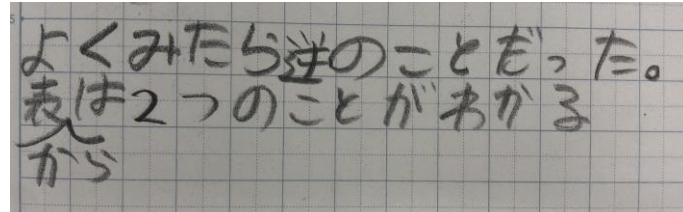 よくみたら逆のことだった。
表は2つのことがわかる
から